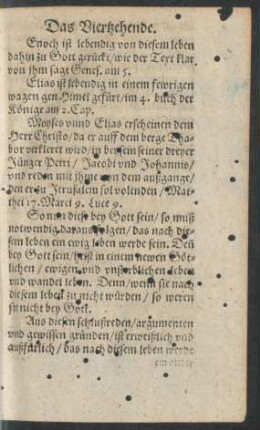 Das Vierzehende.
Enoch ist lebendig von diesem leben
dahin zu Gott gerückt/ wie der Text klar
von ihm sagt Genes. am 5.
Elias ist lebendig in einem fewrigen
wagen gen Himel gefürt/ im 4. buch der
Könige am 2. Cap.
Moses vnnd Elias erscheinen dem
Herr Christo/ da er auff dem berge Tha-
bor verkleret wird/ in beysein seiner dreyer
Jünger Petri/ Jacobi vnd Johannis/
vnd reden mit ihme von dem außgange/
den er zu Jerusalem sol volenden/ Mat-
thei 17. Marci 9. Luce 9.
So nun diese bey Gott sein/ so muß
notwendig daraus folgen/ das nach die-
sem leben ein ewig leben werde sein. Deñ
bey Gott sein/ ist in einem newen Göt-
lichen/ ewigen vnd vnsterblichen leben
vnd wandel leben. Denn/ wenn sie nach
diesem lebē zu nicht würden/ so weren
sie nicht bey Gott.
Aus diesen schlußreden/ argumenten
vnd gewissen gründen/ ist erweißlich vnd
außfürlich/ das nach diesem leben werde